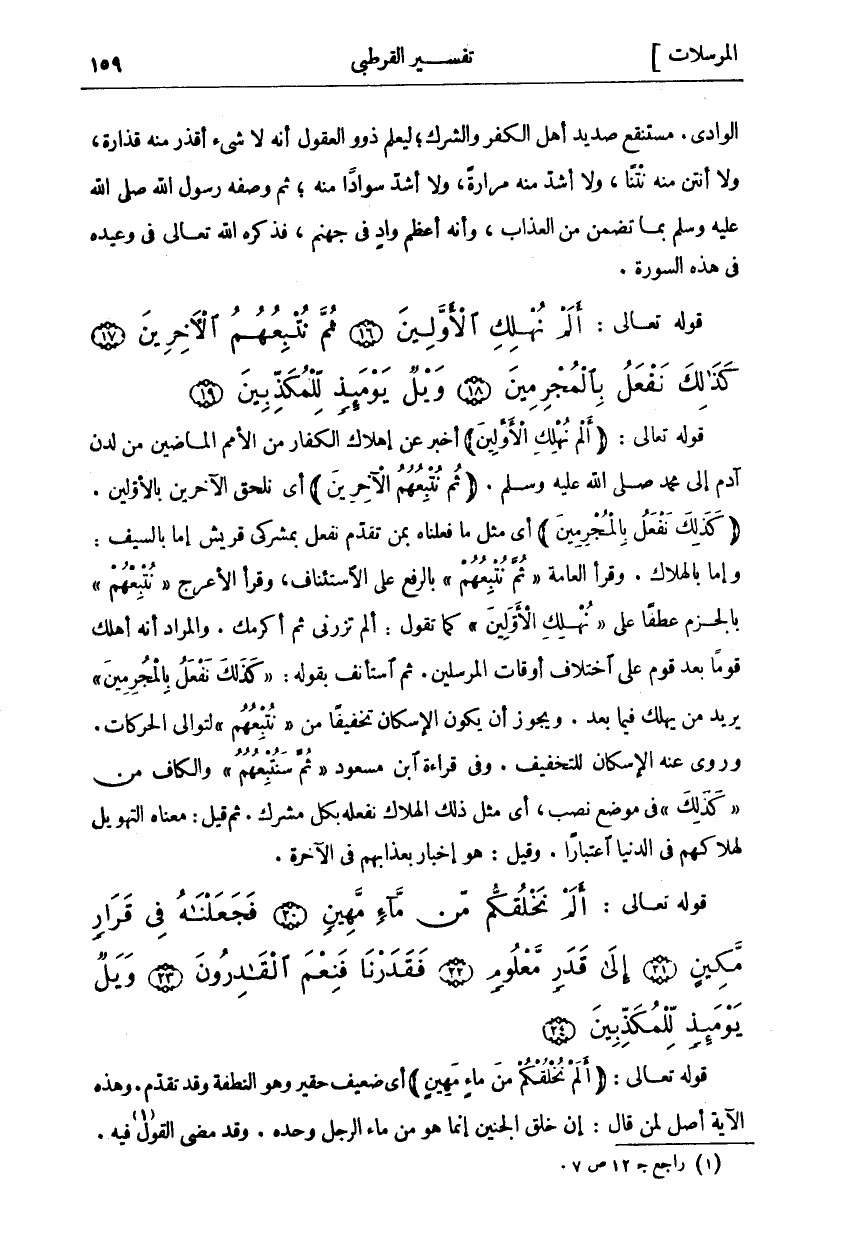 المرسلات ] تفســير القرطبى ١٥٩
الوادى . مستنقع صديد أهل الكفر والشرك؛ ليعلم ذوو العقول أنه لا شىء أقذر منه قذارة،
ولا أنتن منه نَتْنًا ، ولا أشدّ منه مرارةً، ولا أشدّ سوادًا منه ؛ ثم وصفه رسول الله صلى الله
عليه وسلم بمـا تضمن من العذاب ، وأنه أعظم وادٍ فى جهنم ، فذكره الله تعـالى فى وعيده
فى هذه السورة .
قوله تعـالى : أَلَمْ نُهْـلِكِ ٱلْأَوَّلِـينَ ١٦ ثُمَّ نُتْبِعُهُـمُ ٱلْآخِرِينَ ١٧
كَذَٰلِكَ نَفْعَلُ بِٱلْمُجْرِمِينَ ١٨ وَيْلٌ يَوْمَئِذٍ لِّلْمُكَذِّبِينَ ١٩
قوله تعالى : ﴿ أَلَمْ نُهْلِكِ الْأَوَّلِينَ﴾ أخبر عن إهلاك الكفار من الأمم المـاضين من لدن
آدم إلى محمد صـلى الله عليه وسـلم . ﴿ ثُمَّ نُتْبِعُهُمُ الْآخِرِينَ ﴾ أى نلحق الآخرين بالأوّلين .
﴿ كَذَلِكَ نَفْعَلُ بِالْمُجْرِمِينَ ﴾ أى مثل ما فعلناه بمن تقدّم نفعل بمشركى قريش إما بالسيف :
وإما بالهلاك . وقرأ العامة « ثُمَّ نُتْبِعُهُمُ » بالرفع على الٱستئناف، وقرأ الأعرج « نُتْبِعْهُمْ »
بالجـزم عطفًا على « نُهْـلِكِ الْأَوَّلِينَ » كما تقول : ألم تزرنى ثم أكرمك . والمراد أنه أهلك
قومًا بعد قوم على ٱختلاف أوقات المرسلين . ثم ٱستأنف بقوله : «كَذَلِكَ نَفْعَلُ بِالْمُجْرِمِينَ»
يريد من يهلك فيما بعد . ويجوز أن يكون الإسكان تخفيفًا من « نُتْبِعُهُمُ » لتوالى الحركات .
وروى عنه الإسكان للتخفيف . وفى قراءة ٱبن مسعود « ثُمَّ سَنُتْبِعُهُمُ » والكاف من
« كَذَلِكَ » فى موضع نصب، أى مثل ذلك الهلاك نفعله بكل مشرك . ثم قيل : معناه التهويل
لهلاكهم فى الدنيا ٱعتبارًا . وقيل : هو إخبار بعذابهم فى الآخرة .
قوله تعـالى : أَلَمْ نَخْلُقكُّم مِّن مَّآءٍ مَّهِينٍ ٢٠ فَجَعَلْنَـٰهُ فِى قَرَارٍ
مَّكِينٍ ٢١ إِلَىٰ قَدَرٍ مَّعْلُومٍ ٢٢ فَقَدَرْنَا فَنِعْمَ ٱلْقَـٰدِرُونَ ٢٣ وَيْلٌ
يَوْمَئِذٍ لِّلْمُكَذِّبِينَ ٢٤
قوله تعـالى : ﴿ أَلَمْ نَخْلُقْكُمْ مِنْ مَاءٍ مَهِينٍ ﴾ أى ضعيف حقير وهو النطفة وقد تقدّم . وهذه
الآية أصل لمن قال : إن خلق الجنين إنما هو من ماء الرجل وحده . وقد مضى القول(١) فيه .
(١) راجع جـ ١٢ ص ٧ .